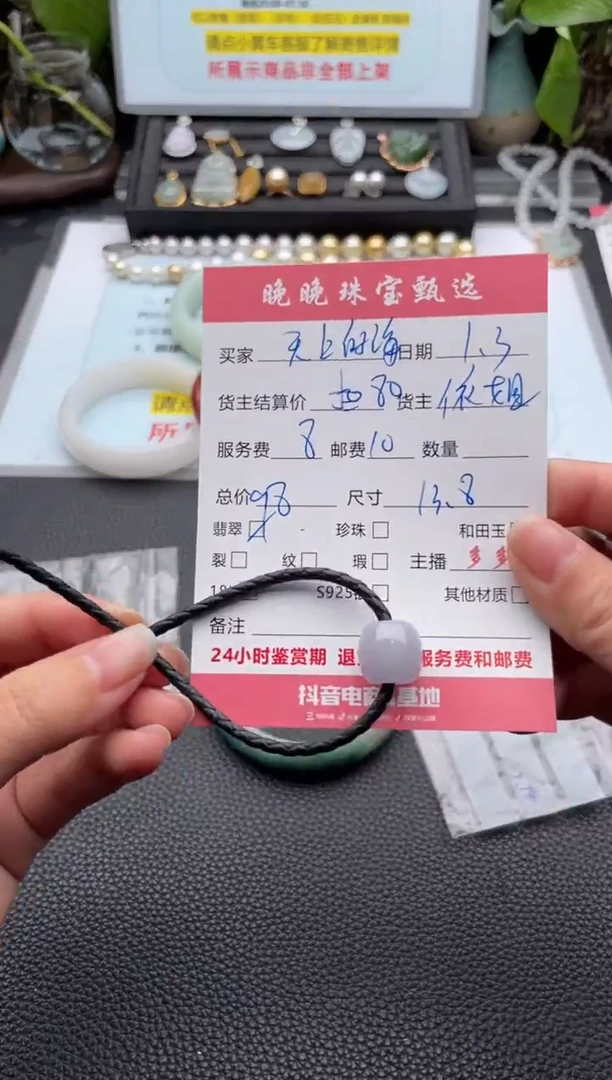 请点小黄车客服了解寄售详情
所展示商品非全部上架
晚晚珠宝甄选
买家 天上的海 日期 1.3
货主结算价 80 货主
服务费 8 邮费 10 数量
总价 98 尺寸 13.8
翡翠 珍珠 和田玉
裂 纹 瑕 主播 多多
S925 其他材质
备注
24小时鉴赏期 退 服务费和邮费
抖音电商 基地